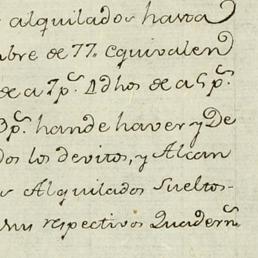 alquilados hasta
mbre de 77. equivalen
de a 7p.s Ádhos de a 5p.s
3p.s han de haver, y De
dos los devitos, y Alcan
s Alquilados Sueltos-
sus respectivos Quadern.s